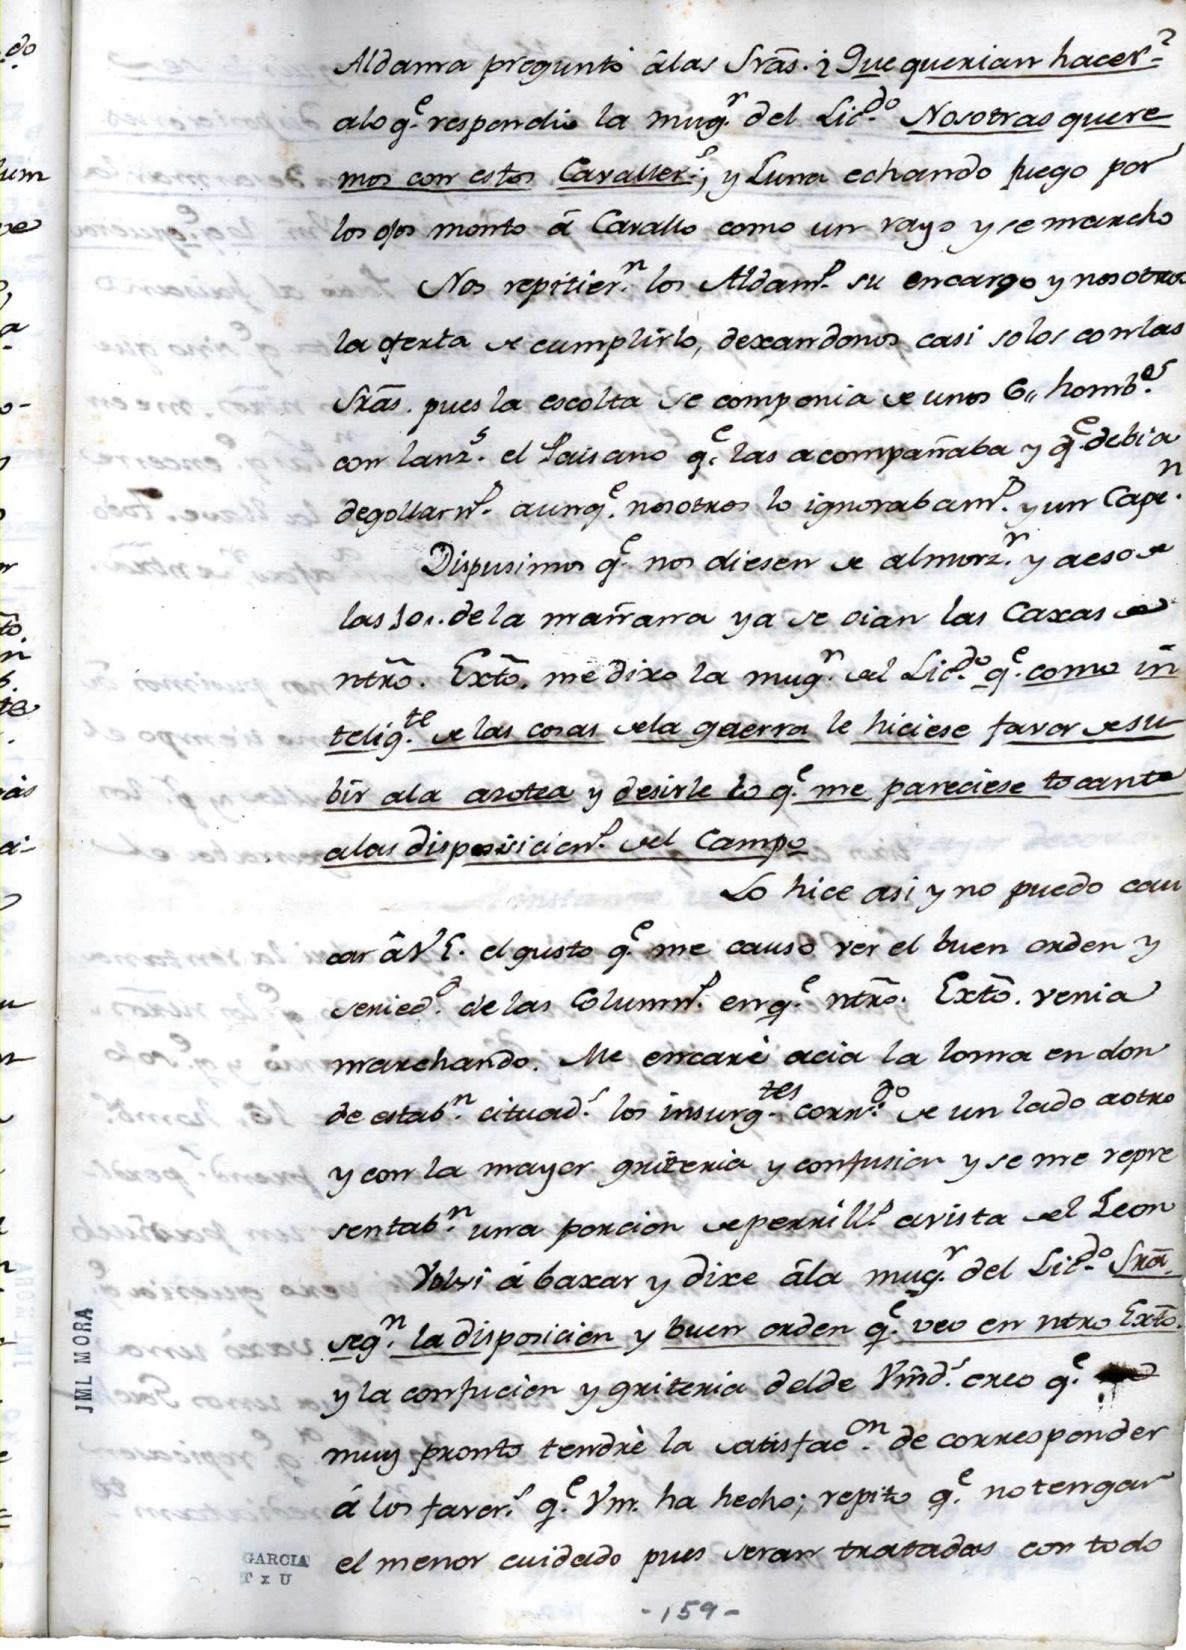 Aldama preguntó âlas Srãs. ¿ Que querian hacer?
alo q.e respondio la mug.r del Lic.do Nosotras quere
mos con estos Cavaller.s; y Luna echando fuego por
los ojos montó á Cavallo como un rayo y se marcho
Nos repitier.n los Aldam.s su encargo y nosotros
la oferta de cumplirlo, dexandonos casi solos con las
Srãs. pues la escolta se componia de unos 6,, homb.es
con lanz.s el Paisano q.e las acompañaba y q.e debia
degollarn.s aunq.e nosotros lo ignorabam.s y un Cap.n
Dispusimos q.e nos diesen de almorz.r y aeso de
las 10,, de la mañana ya se oian las Caxas de
ntrõ. Extõ. me dixo la mug.r del Lic.do q.e como in
telig.te de las cosas dela guerra le hiciese favor de su
bir ala azotea y desirle lo q.e me pareciese tocante
alas disposicion.s del Campo
Lo hice asi y no puedo cau
car âV.E. el gusto q.e me causó ver el buen orden y
seried.d de las Column.s en q.e ntrõ. Extõ. venia
marchando. Me encaré acia la loma en don
de estab.n cituad.s los insurg.tes corr.do de un lado aotro
y con la mayor griteria y confusion y se me repre
sentab.n una porcion de perrill.s avista del Leon
Volvi á baxar y dixe âla mug.r del Lic.do Srã.
seg.n la disposicion y buen orden q.e veo en ntro Extõ.
y la confucion y griteria del de Vmd.s creo q.e
muy pronto tendré la satisfac.on de corresponder
á los favor.s q.e Vm. ha hecho; repito q.e no tengan
el menor cuidado pues seran tratadas con todo
-159-
JML MORA
GARCIA
T x U